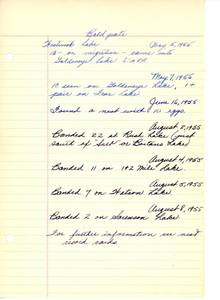 Baldpate
Hedrick Lake May 5, 1955
12 - on migration - came into
Goldeneye Lake
May 7, 1955
10 seen on Goldeneye Lake, 1+
pair on Four Lake
June 16, 1955
Found a nest with 10 eggs.
August 5, 1955
Banded 22 at Rush Lake (just
south of Salt or Lake)
August 4, 1955
Banded 11 on 142 Mile Lake.
August 5, 1955
Banded 7 on Watson Lake
August 8, 1955
Banded 2 on Sorenson Lake.
For further information see nest
record cards.